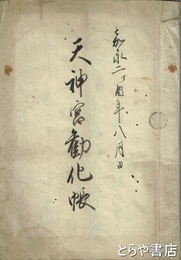 嘉永二己酉年八月日
天神宮勧化帳
とらや書店